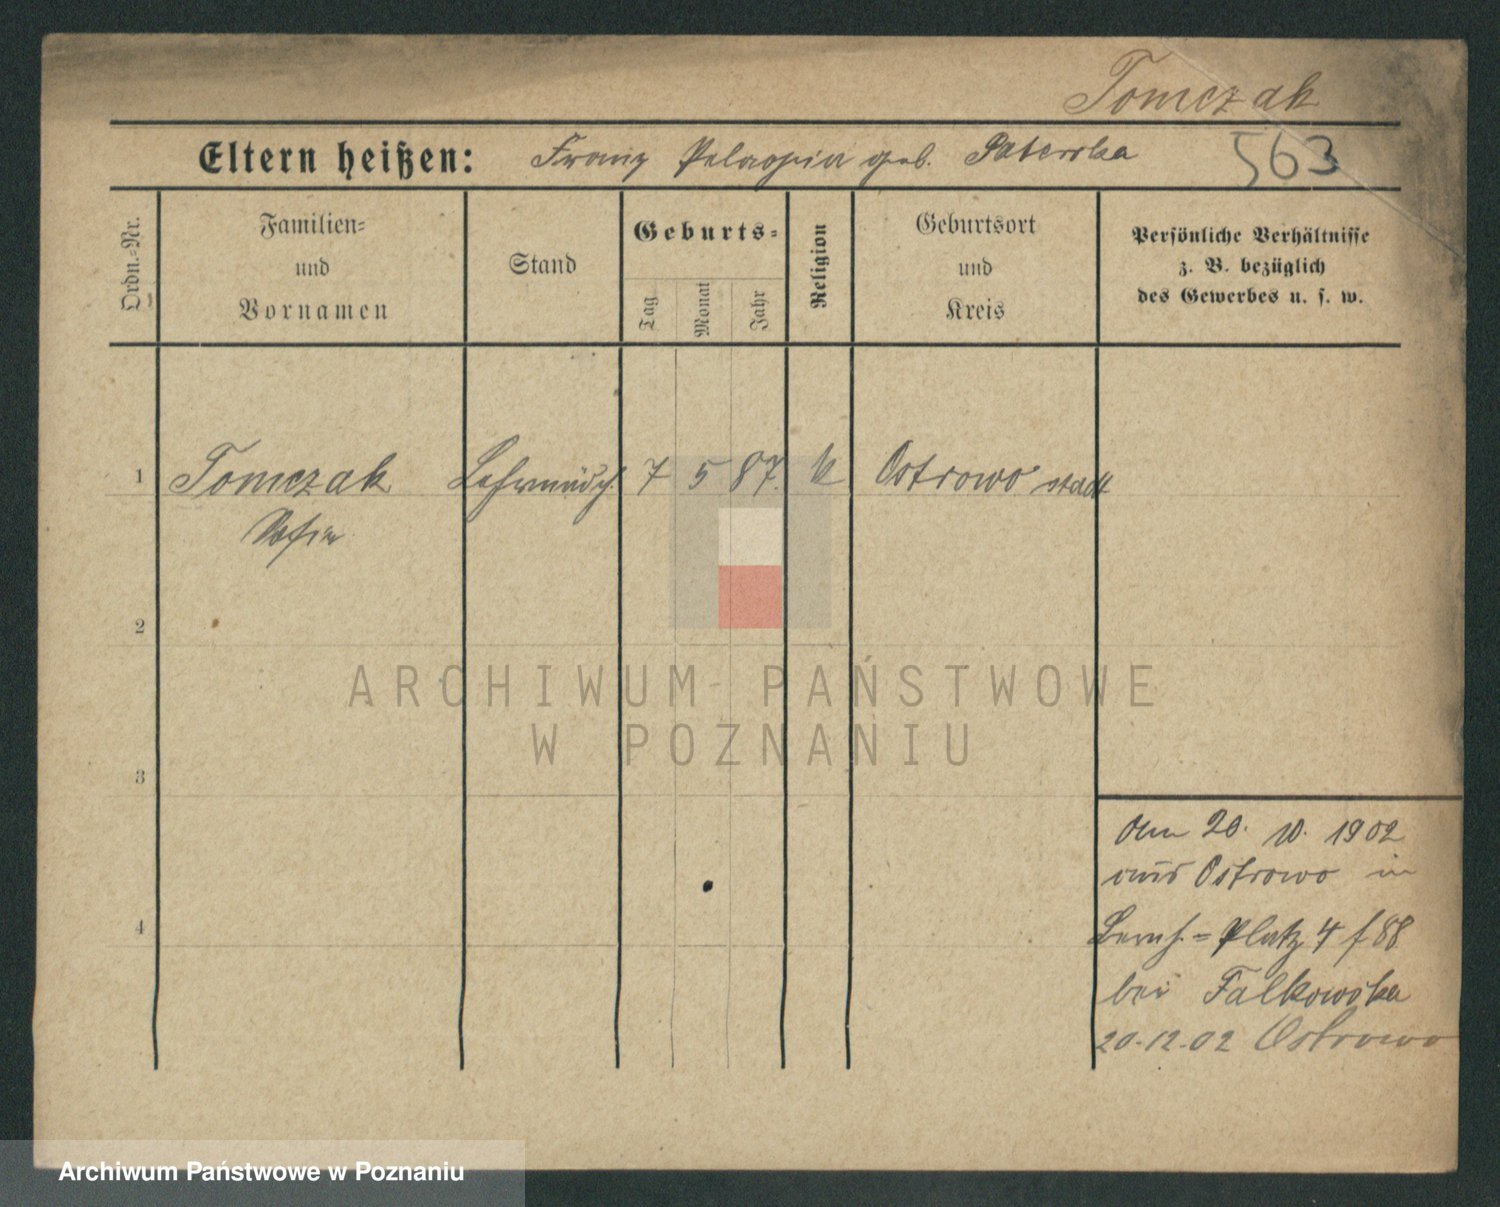 Tomczak
Eltern heißen: Franz Pelagia geb. Paterska 563
Ordn.-Nr.
Familien-
und
Vornamen
Stand
Geburts-
Tag
Monat
Jahr
Religion
Geburtsort
und
Kreis
Persönliche Verhältnisse
z. B. bezüglich
des Gewerbes u. s. w.
1 Tomczak Lehrmädch. 7 5 87. k Ostrowo stadt
Sofia
2
3
4
Am 20. 10. 1902
aus Ostrowo in
Bernh.=Platz 4 f 88
bei Falkowska
20.12.02 Ostrowo
ARCHIWUM PAŃSTWOWE
W POZNANIU
Archiwum Państwowe w Poznaniu